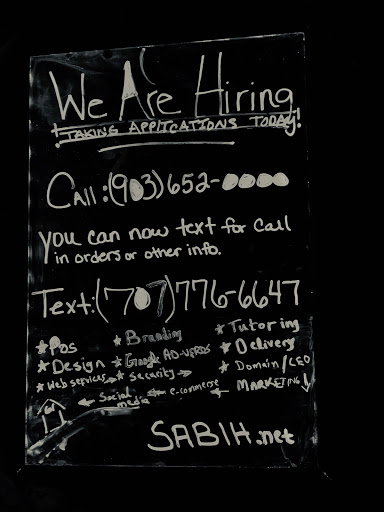 We Are Hiring
TAKING APPLICATIONS TODAY!
Call: (903) 652-0000
you can now text for Call
in orders or other info.
Text: (707) 776-6647
★ Pos ★ Branding ★ Tutoring
★ Design ★ Google AD-WERDS ★ Delivery
★ Web services ★ Security → ★ Domain/CEO
← Social media ← e-commerse ← MARKETING ↓
SABIH.net